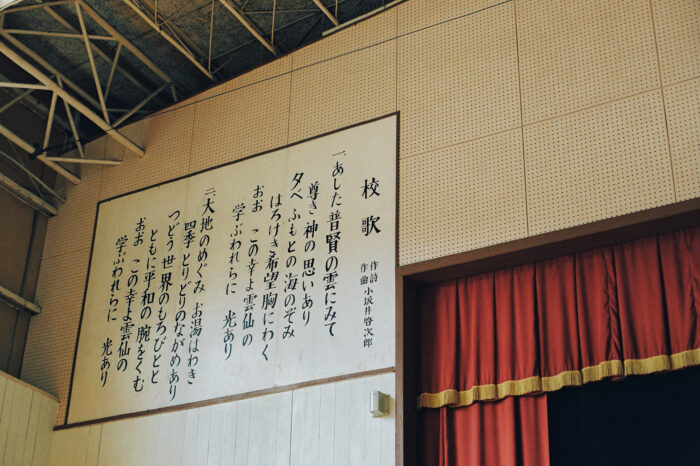 校歌
作詩
作曲 小坂井啓次郎
一、あした 普賢の雲にみて
尊き 神の思いあり
夕べ ふもとの海のぞみ
はろけき希望胸にわく
おお この幸よ雲仙の
学ぶわれらに 光あり
二、大地のめぐみ お湯はわき
四季 とりどりのながめあり
つどう 世界のもろびとと
ともに平和の 腕をくむ
おお この幸よ雲仙の
学ぶわれらに 光あり